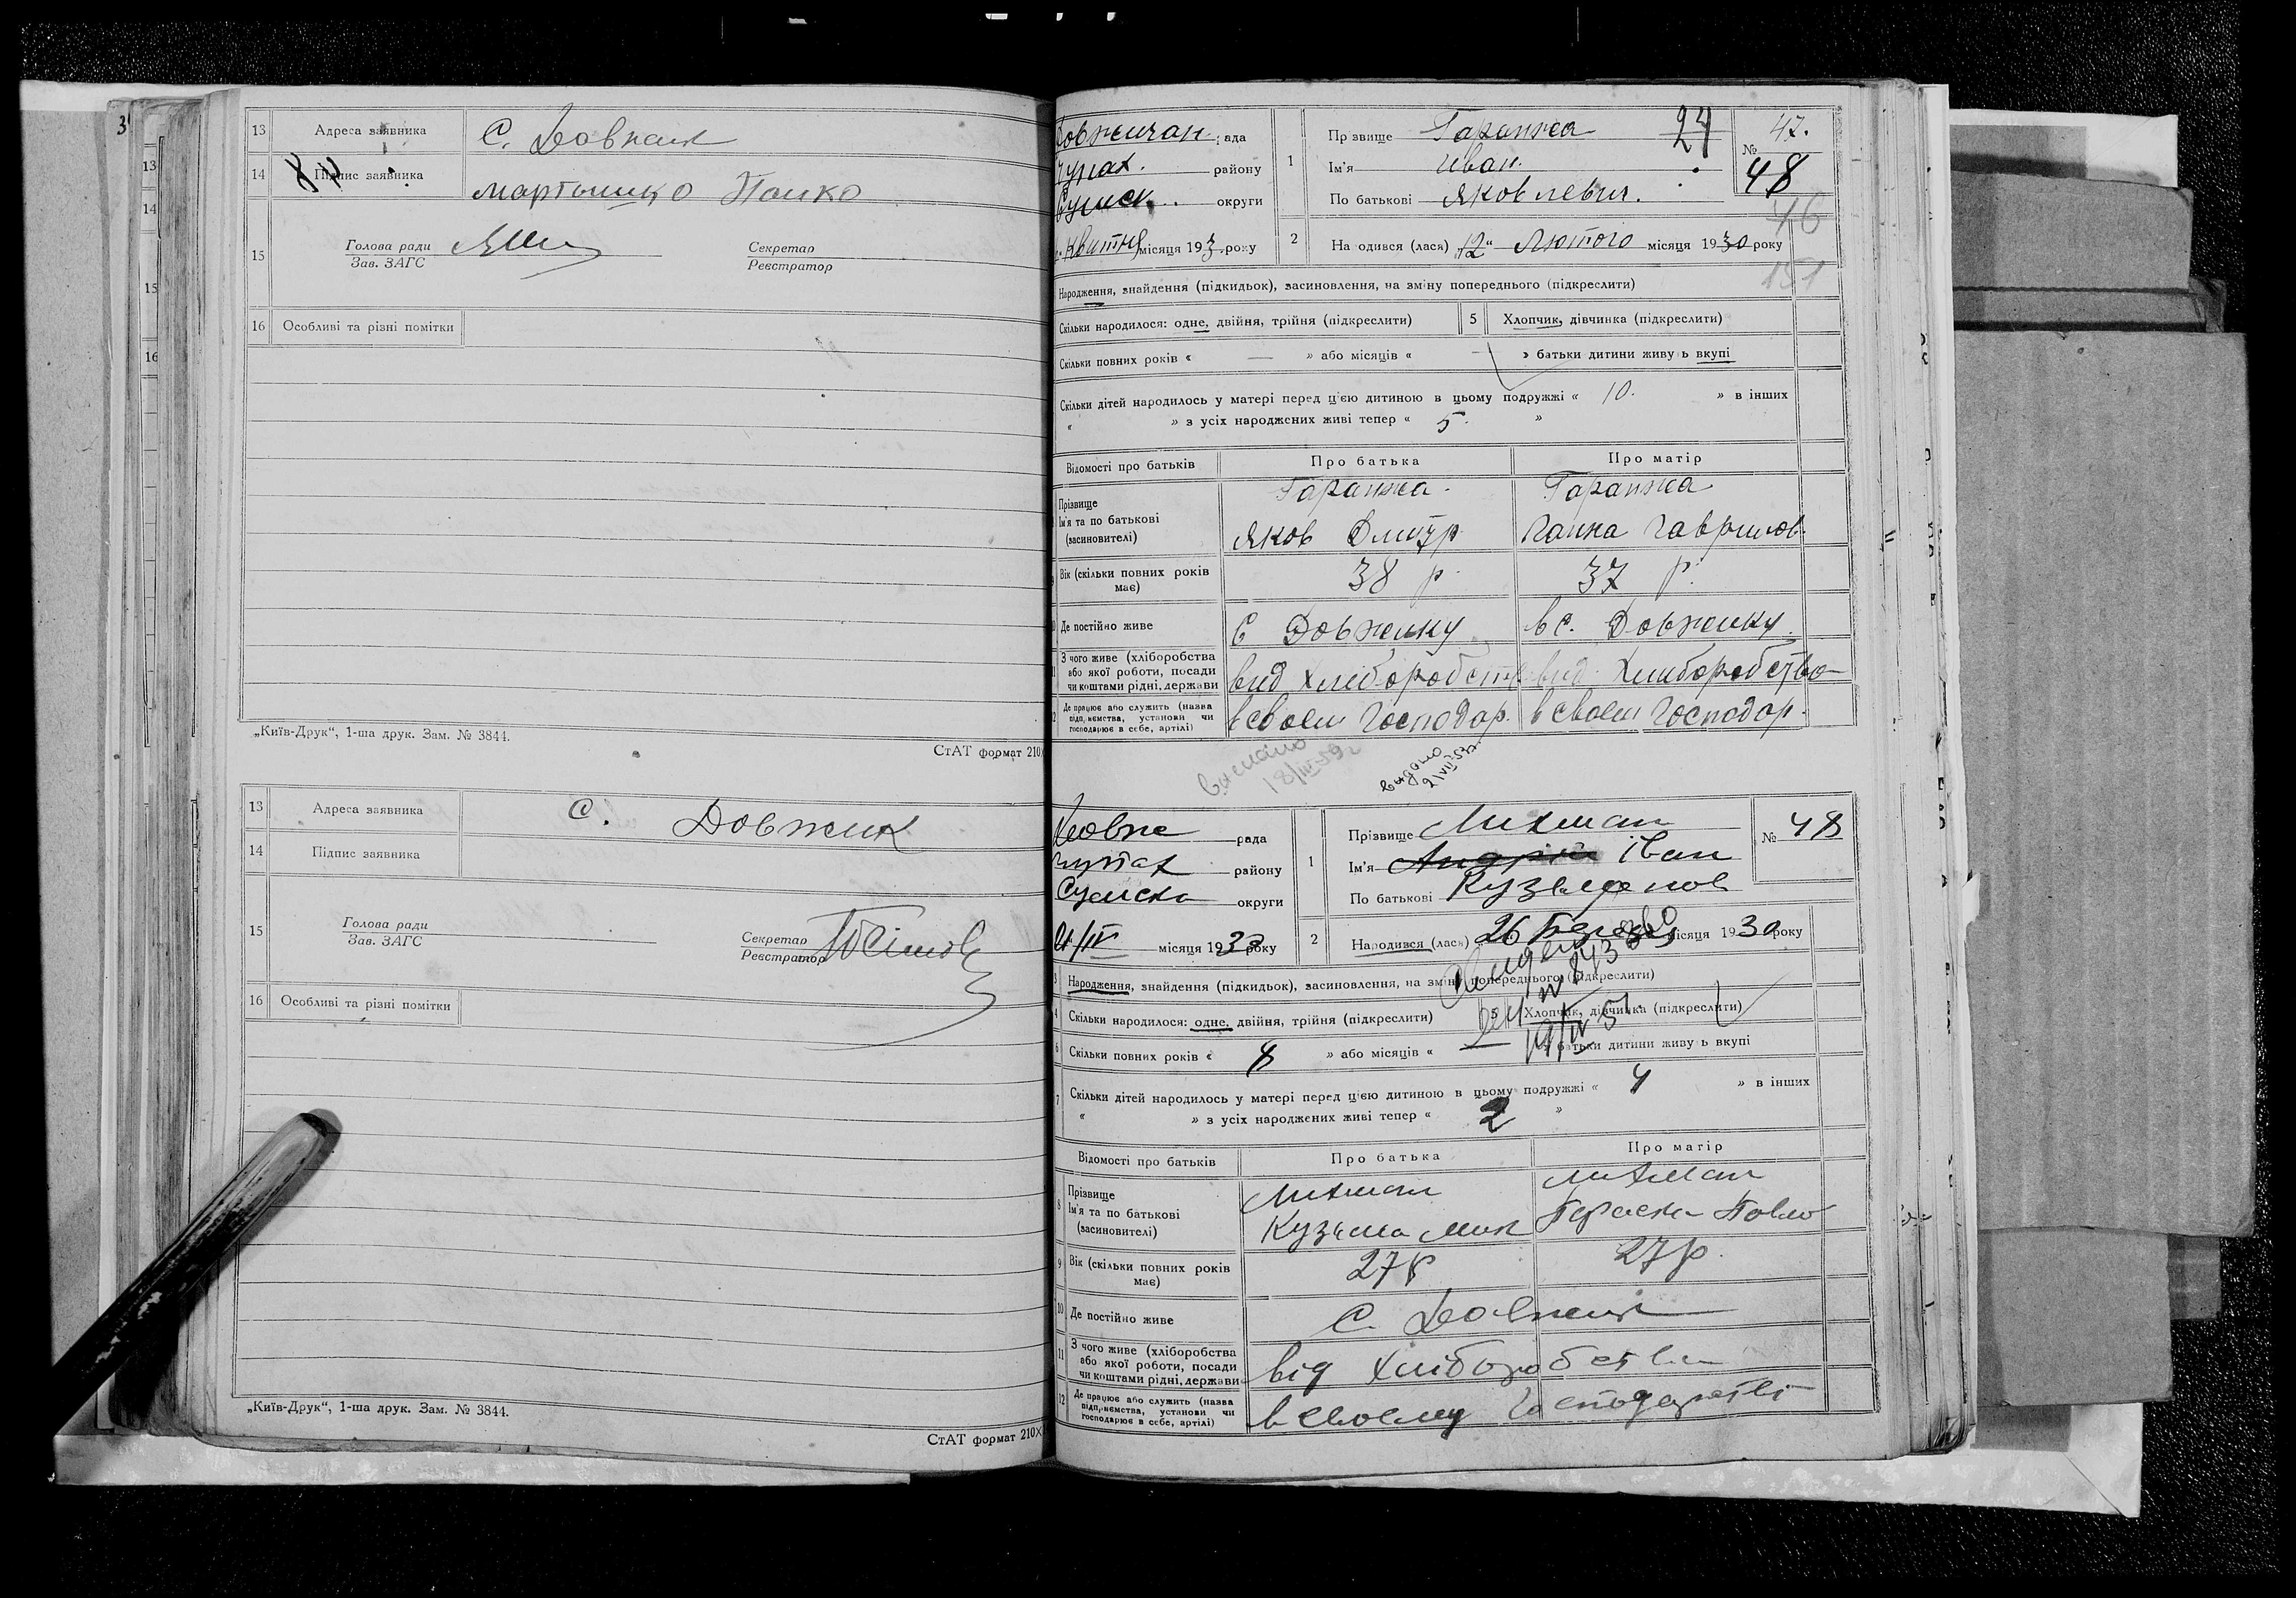 13 Адреса заявника С. Довжик
14 Підпис заявника Мартынко Панко
84
15 Голова ради
Зав. ЗАГС
Секретар
Реєстратор
16 Особливі та різні помітки
„Київ-Друк“, 1-ша друк. Зам. № 3844.
СтАТ формат 210×
13 Адреса заявника С. Довжик
14 Підпис заявника
15 Голова ради
Зав. ЗАГС
Секретар
Реєстратор
16 Особливі та різні помітки
„Київ-Друк“, 1-ша друк. Зам. № 3844.
СтАТ формат 210×
Довжичан рада
району
Сумск. округи
Квитня місяця 193 року
1 Прізвище Гаранжа
24
Ім'я Иван
По батькові Яковлевич.
№ 47.
48
46
151
2 Народився (лася) „12“ Лютого місяця 1930 року
Народження, знайдення (підкидьок), засиновлення, на зміну попереднього (підкреслити)
Скільки народилося: одне, двійня, трійня (підкреслити)
5 Хлопчик, дівчинка (підкреслити)
Скільки повних років « — » або місяців « — » батьки дитини живуть вкупі
Скільки дітей народилось у матері перед цією дитиною в цьому подружжі « 10. » в інших
« » з усіх народжених живі тепер « 5. »
Відомості про батьків Про батька Про матір
Прізвище Гаранжа. Гаранжа
Ім'я та по батькові
(засиновителі) Яков Дмитр Ганна Гаврилов.
Вік (скільки повних років має) 38 р. 37 р.
Де постійно живе С Довжику в с. Довжику.
З чого живе (хліборобства
або якої роботи, посади
чи коштами рідні, держави вид Хлиборобств вид Хлиборобства
Де працює або служить (назва
підприємства, установи чи
господарює в себе, артілі) в своем Господар. в своем Господар.
выслано
18/III-59 г
выдано
21/VII 53 г.
Довже рада
району
Сумска округи
місяця 1930 року
1 Прізвище Лихман
Ім'я Андрій Іван
По батькові
№ 48
2 Народився (лася) 26 місяця 1930 року
3 Народження, знайдення (підкидьок), засиновлення, на зміну попереднього (підкреслити)
4 Скільки народилося: одне, двійня, трійня (підкреслити)
5 Хлопчик, дівчинка (підкреслити)
6 Скільки повних років « » або місяців « » батьки дитини живуть вкупі
7 Скільки дітей народилось у матері перед цією дитиною в цьому подружжі « 4 » в інших
« » з усіх народжених живі тепер « 2 »
Відомості про батьків Про батька Про матір
8 Прізвище Лихман Лихман
Ім'я та по батькові
(засиновителі) Кузьма Мик Параска Павло
9 Вік (скільки повних років має) 27 р 27 р.
10 Де постійно живе С. Довжик
11 З чого живе (хліборобства
або якої роботи, посади
чи коштами рідні, держави від Хліборобства
12 Де працює або служить (назва
підприємства, установи чи
господарює в себе, артілі) в своєму Господарстві